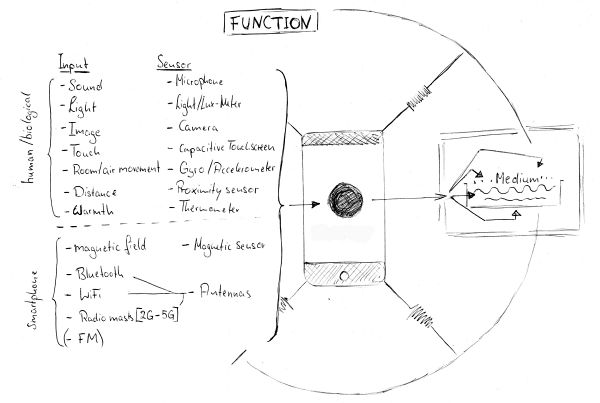 FUNCTION
Input Sensor
human/biological
- Sound - Microphone
- Light - Light/Lux-Meter
- Image - Camera
- Touch - Capacitive Touchscreen
- Room/air movement - Gyro/Accelerometer
- Distance - Proximity sensor
- Warmth - Thermometer
Smartphone
- magnetic field - Magnetic sensor
- Bluetooth
- WiFi - Antennas
- Radio masts [2G-5G]
(- FM)
...Medium...